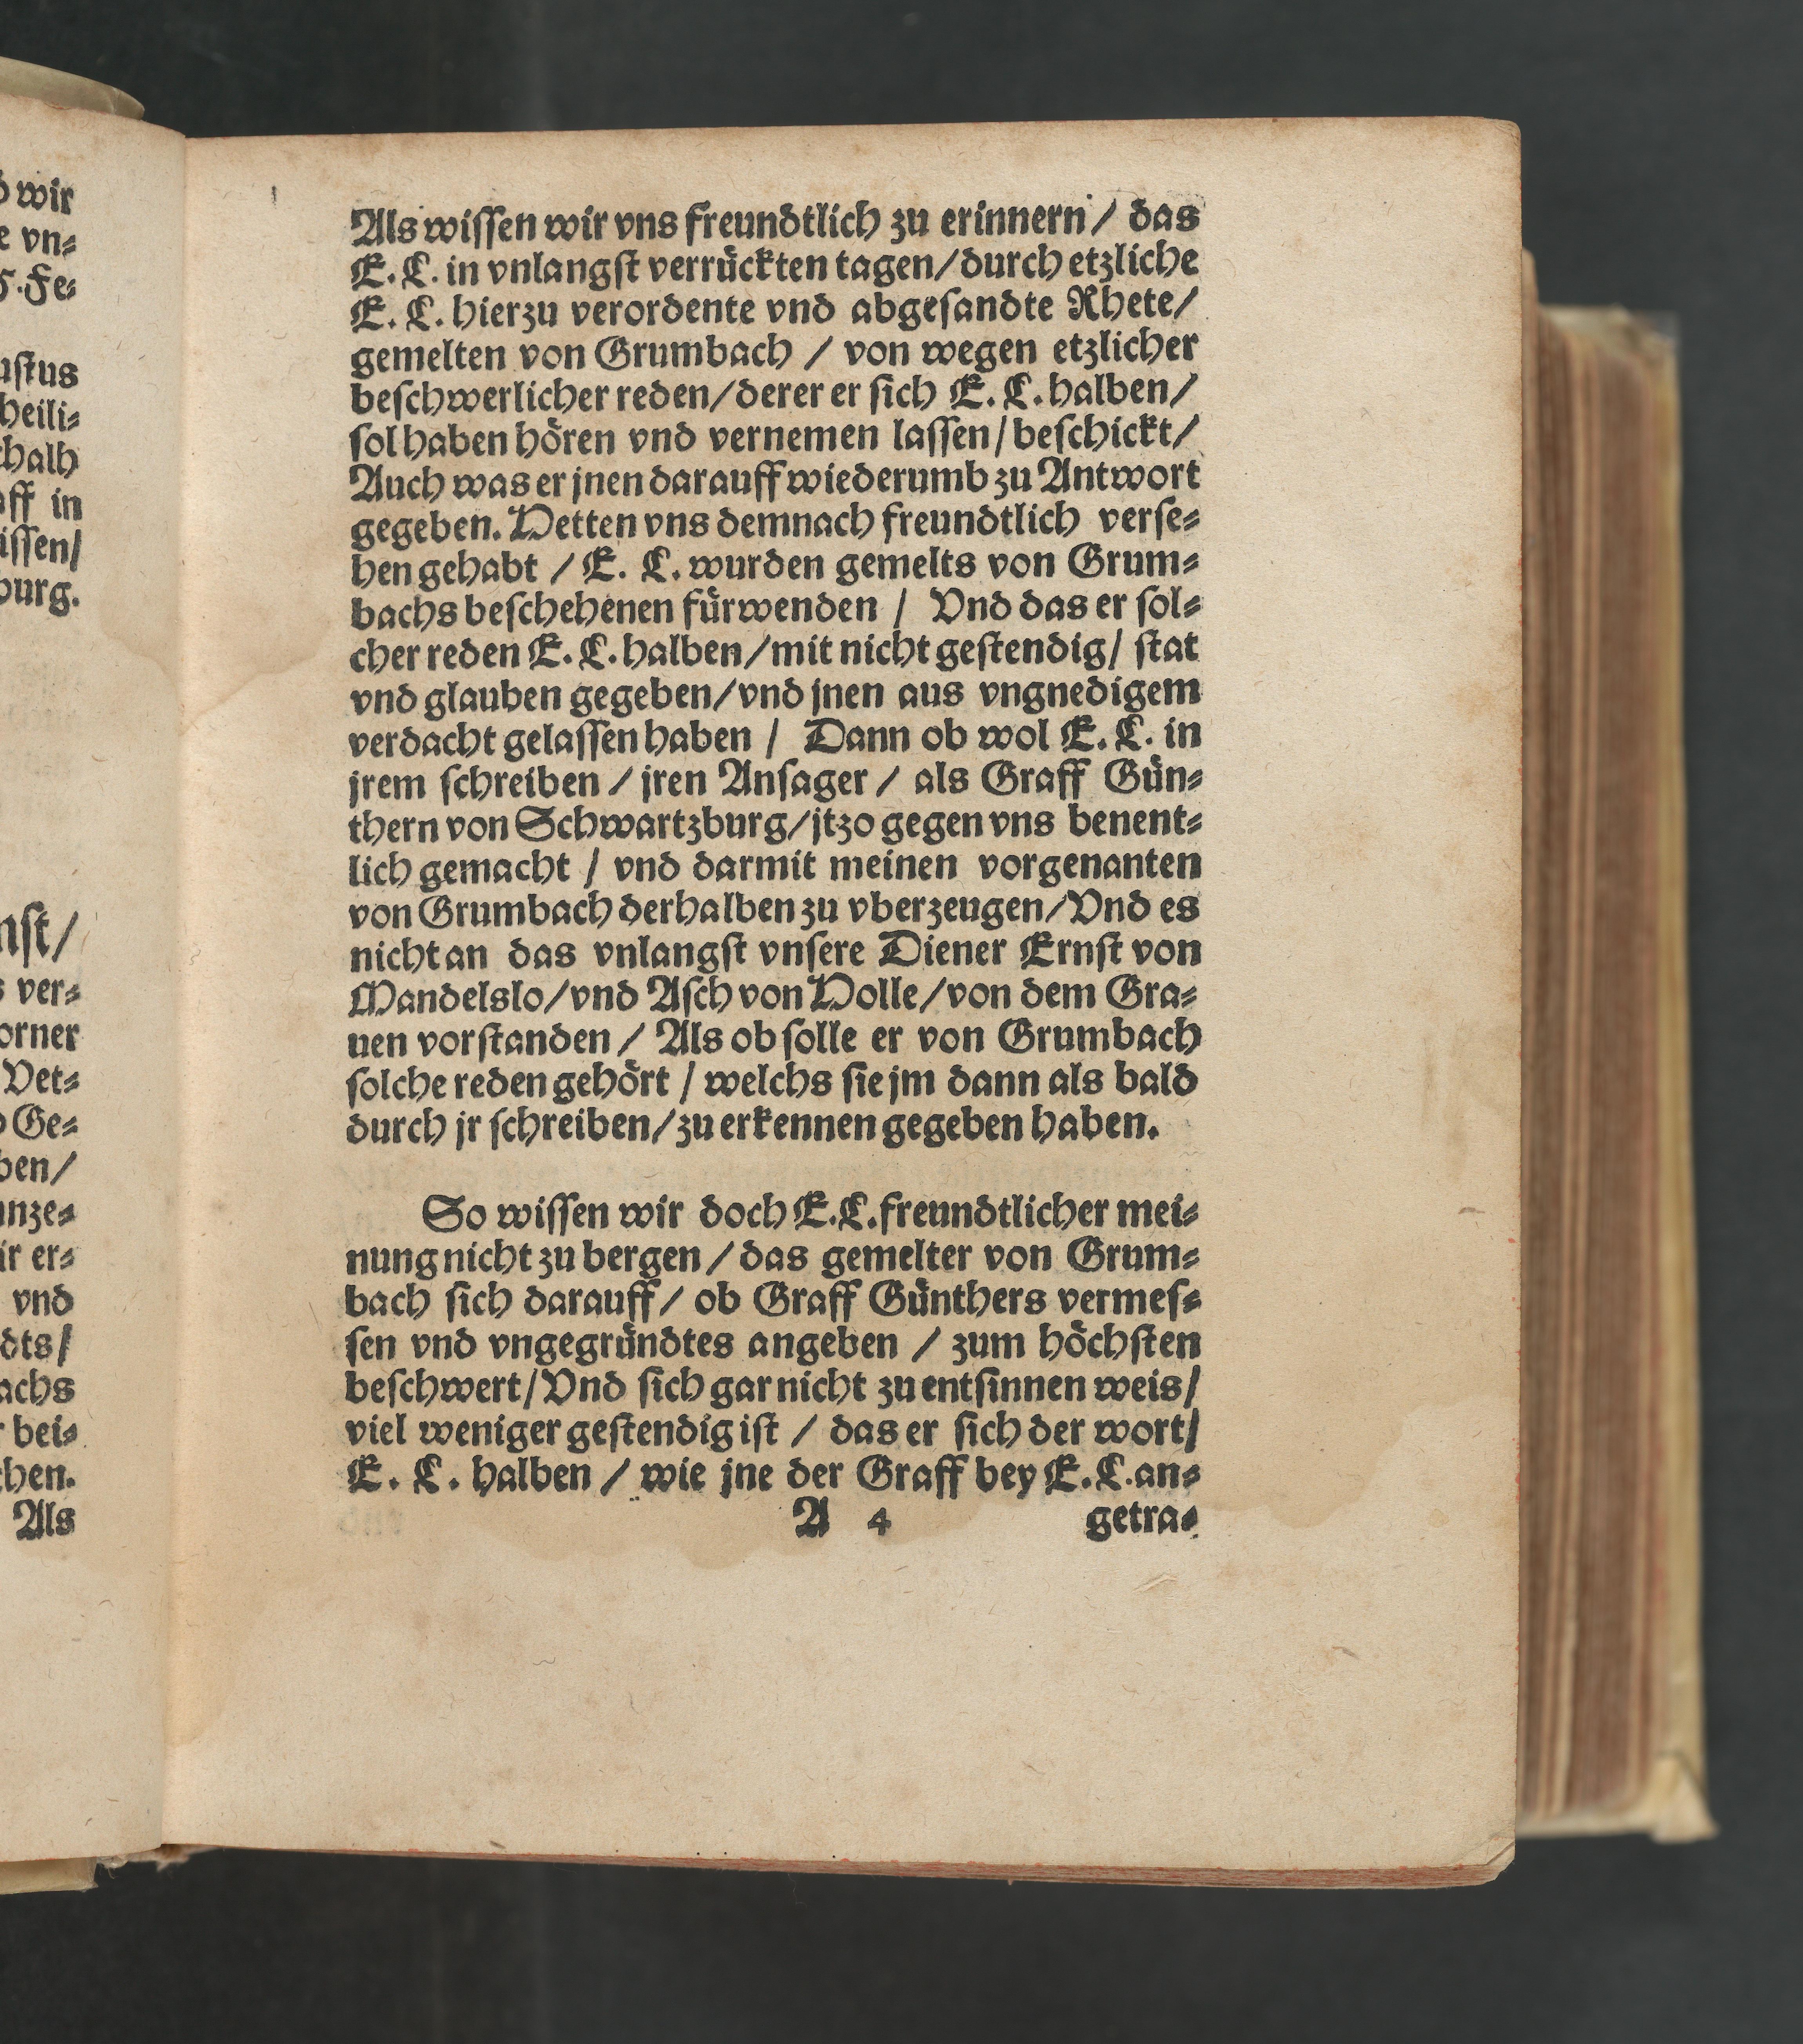 d wir
e vn⸗
5. Fe⸗
ustus
heili⸗
chalb
aff in
issen/
burg.
nst/
s ver⸗
orner
Vet⸗
d Ge⸗
ben/
unze⸗
ir er⸗
vnd
dts/
achs
r bei⸗
chen.
Als
Als wiſſen wir vns freundtlich zu erinnern / das
E. L. in vnlangſt verrückten tagen/durch etzliche
E. L. hierzu verordente vnd abgeſandte Rhete/
gemelten von Grumbach / von wegen etzlicher
beſchwerlicher reden/derer er ſich E. L. halben/
ſol haben hören vnd vernemen laſſen/beſchickt/
Auch was er jnen darauff wiederumb zu Antwort
gegeben. Hetten vns demnach freundtlich verſe⸗
hen gehabt / E. L. wurden gemelts von Grum⸗
bachs beſchehenen fürwenden / Vnd das er ſol⸗
cher reden E. L. halben/mit nicht geſtendig/ ſtat
vnd glauben gegeben/vnd jnen aus vngnedigem
verdacht gelaſſen haben / Dann ob wol E. L. in
jrem ſchreiben / jren Anſager / als Graff Gün⸗
thern von Schwartzburg/jtzo gegen vns benent⸗
lich gemacht / vnd darmit meinen vorgenanten
von Grumbach derhalben zu vberzeugen/Vnd es
nicht an das vnlangſt vnſere Diener Ernſt von
Mandelslo/vnd Aſch von Holle/von dem Gra⸗
uen vorſtanden / Als ob ſolle er von Grumbach
ſolche reden gehört / welchs ſie jm dann als bald
durch jr ſchreiben/zu erkennen gegeben haben.
So wiſſen wir doch E. L. freundtlicher mei⸗
nung nicht zu bergen / das gemelter von Grum⸗
bach ſich darauff / ob Graff Günthers vermeſ⸗
ſen vnd vngegründtes angeben / zum höchſten
beſchwert/Vnd ſich gar nicht zu entſinnen weis/
viel weniger geſtendig iſt / das er ſich der wort/
E. L. halben / wie jne der Graff bey E. L. an⸗
A 4 getra⸗